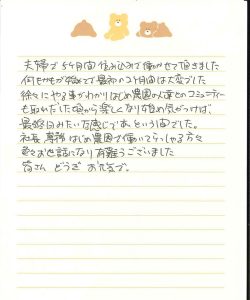 夫婦で5ヶ月間住み込みで働かせて頂きました
何もかもが初めてで最初の1ヶ月間は大変でした
徐々にやる事がわかりはじめ農園の人達とのコミュニティー
も取れだした頃から楽しくなり始め気がつけば
最終日みたいな感じであっという間でした。
社長、専務はじめ農園で働いてらっしゃる方々
お世話になり有難うございました
皆さん どうぞ お元気で。